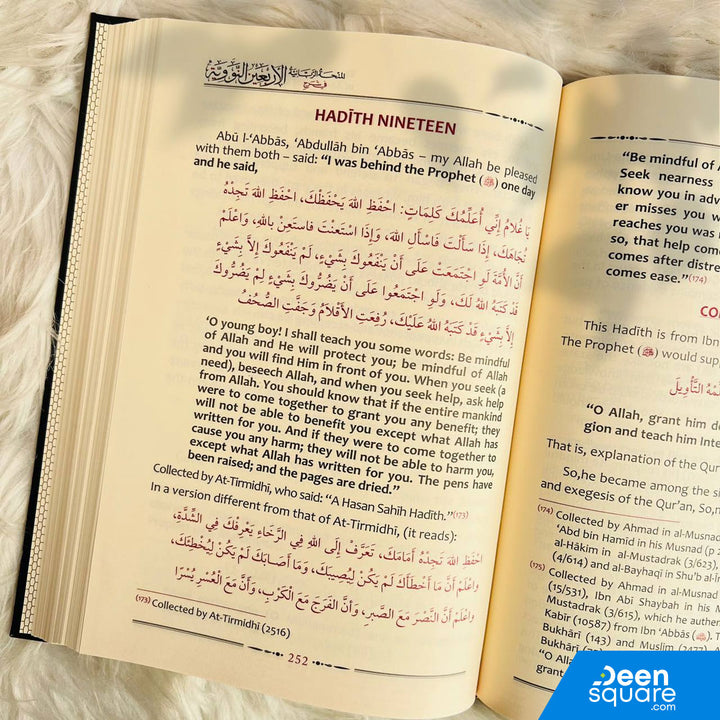 للمنحة الربانية
في شرح
الأربعين النووية
HADĪTH NINETEEN
Abū l-‘Abbās, ‘Abdullāh bin ‘Abbās – my Allah be pleased
with them both – said: “I was behind the Prophet (ﷺ) one day
and he said,
يَا غُلَامُ إِنِّي أُعَلِّمُكَ كَلِمَاتٍ: احْفَظِ اللهَ يَحْفَظْكَ، احْفَظِ اللهَ تَجِدْهُ
تُجَاهَكَ، إِذَا سَأَلْتَ فَاسْأَلِ اللهَ، وَإِذَا اسْتَعَنْتَ فَاسْتَعِنْ بِاللهِ، وَاعْلَمْ
أَنَّ الأُمَّةَ لَوِ اجْتَمَعَتْ عَلَى أَنْ يَنْفَعُوكَ بِشَيْءٍ، لَمْ يَنْفَعُوكَ إِلاَّ بِشَيْءٍ
قَدْ كَتَبَهُ اللهُ لَكَ، وَلَوِ اجْتَمَعُوا عَلَى أَنْ يَضُرُّوكَ بِشَيْءٍ لَمْ يَضُرُّوكَ
إِلاَّ بِشَيْءٍ قَدْ كَتَبَهُ اللهُ عَلَيْكَ، رُفِعَتِ الأَقْلَامُ وَجَفَّتِ الصُّحُفُ
‘O young boy! I shall teach you some words: Be mindful
of Allah and He will protect you; be mindful of Allah
and you will find Him in front of you. When you seek (a
need), beseech Allah, and when you seek help, ask help
from Allah. You should know that if the entire mankind
were to come together to grant you any benefit; they
will not be able to benefit you except what Allah has
written for you. And if they were to come together to
cause you any harm; they will not be able to harm you,
except what Allah has written for you. The pens have
been raised; and the pages are dried.”
Collected by At-Tirmidhī, who said: “A Hasan Sahīh Hadīth.”(173)
In a version different from that of At-Tirmidhī, (it reads):
احْفَظِ اللهَ تَجِدْهُ أَمَامَكَ، تَعَرَّفْ إِلَى اللهِ فِي الرَّخَاءِ يَعْرِفْكَ فِي الشِّدَّةِ،
وَاعْلَمْ أَنَّ مَا أَخْطَأَكَ لَمْ يَكُنْ لِيُصِيبَكَ، وَمَا أَصَابَكَ لَمْ يَكُنْ لِيُخْطِئَكَ،
وَاعْلَمْ أَنَّ النَّصْرَ مَعَ الصَّبرِ، وَأَنَّ الفَرَجَ مَعَ الْكَرْبِ، وَأَنَّ مَعَ الْعُسْرِ يُسْرًا
(173) Collected by At-Tirmidhī (2516)
252
“Be mindful of A
Seek nearness
know you in adv
er misses you w
reaches you was
so, that help come
comes after distre
comes ease.”(174)
CO
This Hadīth is from Ibn
The Prophet (ﷺ) would supp
مْهُ التَّأْوِيلَ
“O Allah, grant him de
gion and teach him Inte
That is, explanation of the Qur
So,he became among the s
and exegesis of the Qur’an, So,n
(174) Collected by Ahmad in al-Musnad
‘Abd bin Hamīd in his Musnad (p 2
al-Hākim in al-Mustadrak (3/623),
(4/614) and al-Bayhaqi in Shu’b al-I
(175) Collected by Ahmad in al-Musnad
(15/531), Ibn Abi Shaybah in his M
Mustadrak (3/615), which he authen
Kabīr (10587) from Ibn ‘Abbās (). T
Bukhārī (143) and Muslim (2477).
Bukhārī
“O Alla
grant
Deen
square
.com